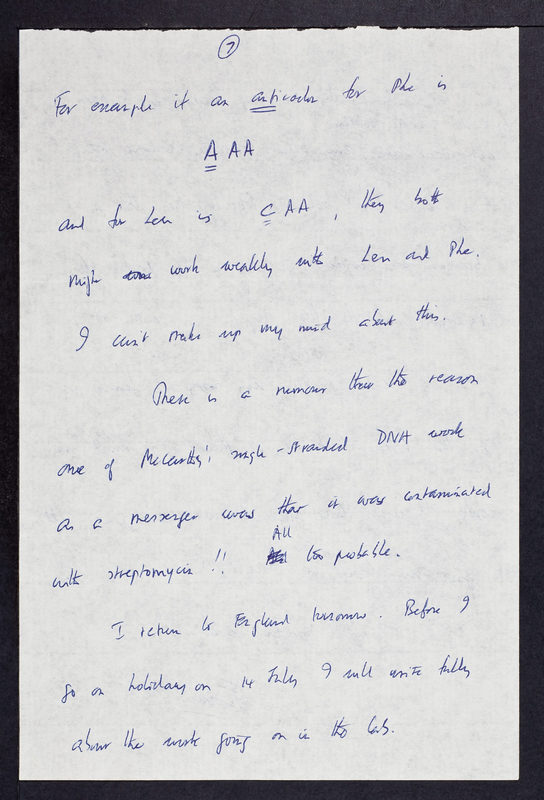 7
For example if an anticodon for Phe is
A AA
and for Leu is C AA, they both
might work weakly with Leu and Phe.
I can't make up my mind about this.
There is a rumour that the reason
one of McCarthy's single-stranded DNA work
as a messenger was that it was contaminated
with streptomycin!! All too probable.
I return to England tomorrow. Before I
go on holiday on 14 July I will write fully
about the work going on in the lab.